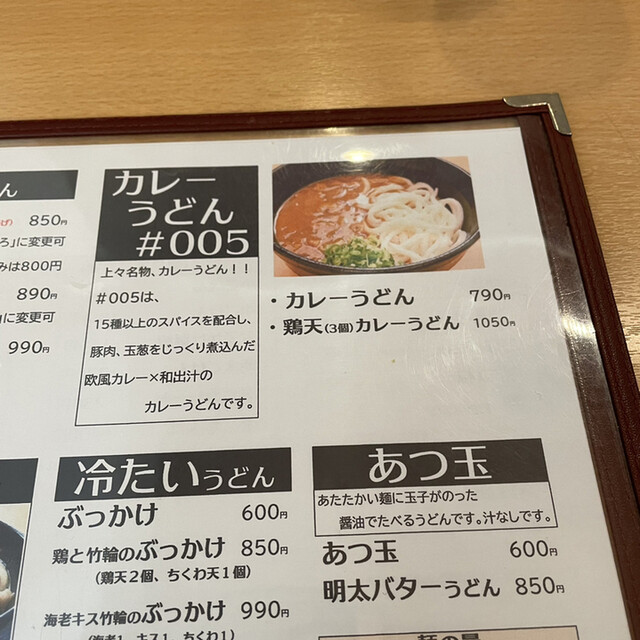 ん
げ) 850円
ろ」に変更可
みは800円
890円
に変更可
990円
カレー
うどん
#005
上々名物、カレーうどん！！
#005は、
15種以上のスパイスを配合し、
豚肉、玉葱をじっくり煮込んだ
欧風カレー×和出汁の
カレーうどんです。
・カレーうどん 790円
・鶏天(3個)カレーうどん 1050円
冷たいうどん
ぶっかけ 600円
鶏と竹輪のぶっかけ 850円
(鶏天２個、ちくわ天１個)
海老キス竹輪のぶっかけ 990円
(海老1、キス1、ちくわ1)
あつ玉
あたたかい麺に玉子がのった
醤油でたべるうどんです。汁なしです。
あつ玉 600円
明太バターうどん 850円
麺の量